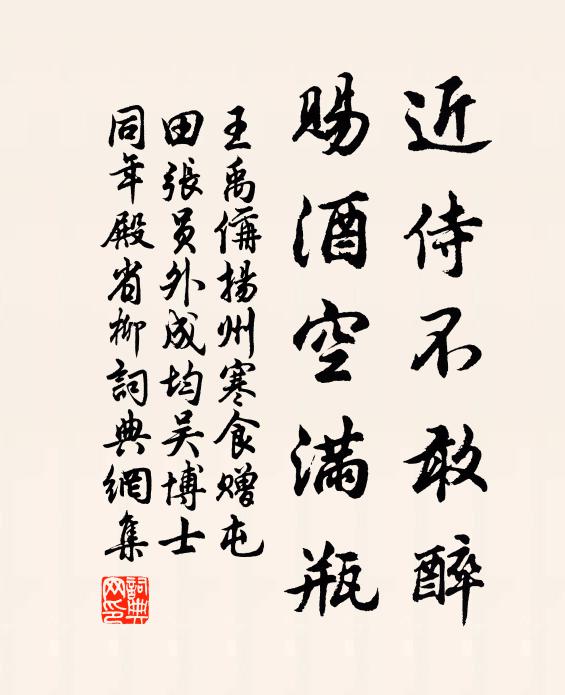 近侍不敢醉
賜酒空滿瓶
王禹偁揚州寒食贈屯
田張員外成均吴博士
同年殿省柳詞典網集
詞典
网印